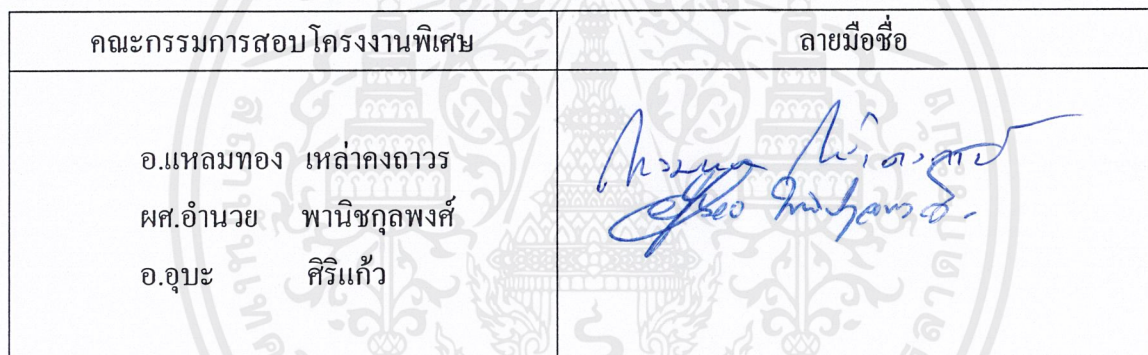 คณะกรรมการสอบโครงงานพิเศษ ลายมือชื่อ
อ.แหลมทอง เหล่าคงถาวร
ผศ.อำนวย พานิชกุลพงศ์
อ.อุบะ ศิริแก้ว